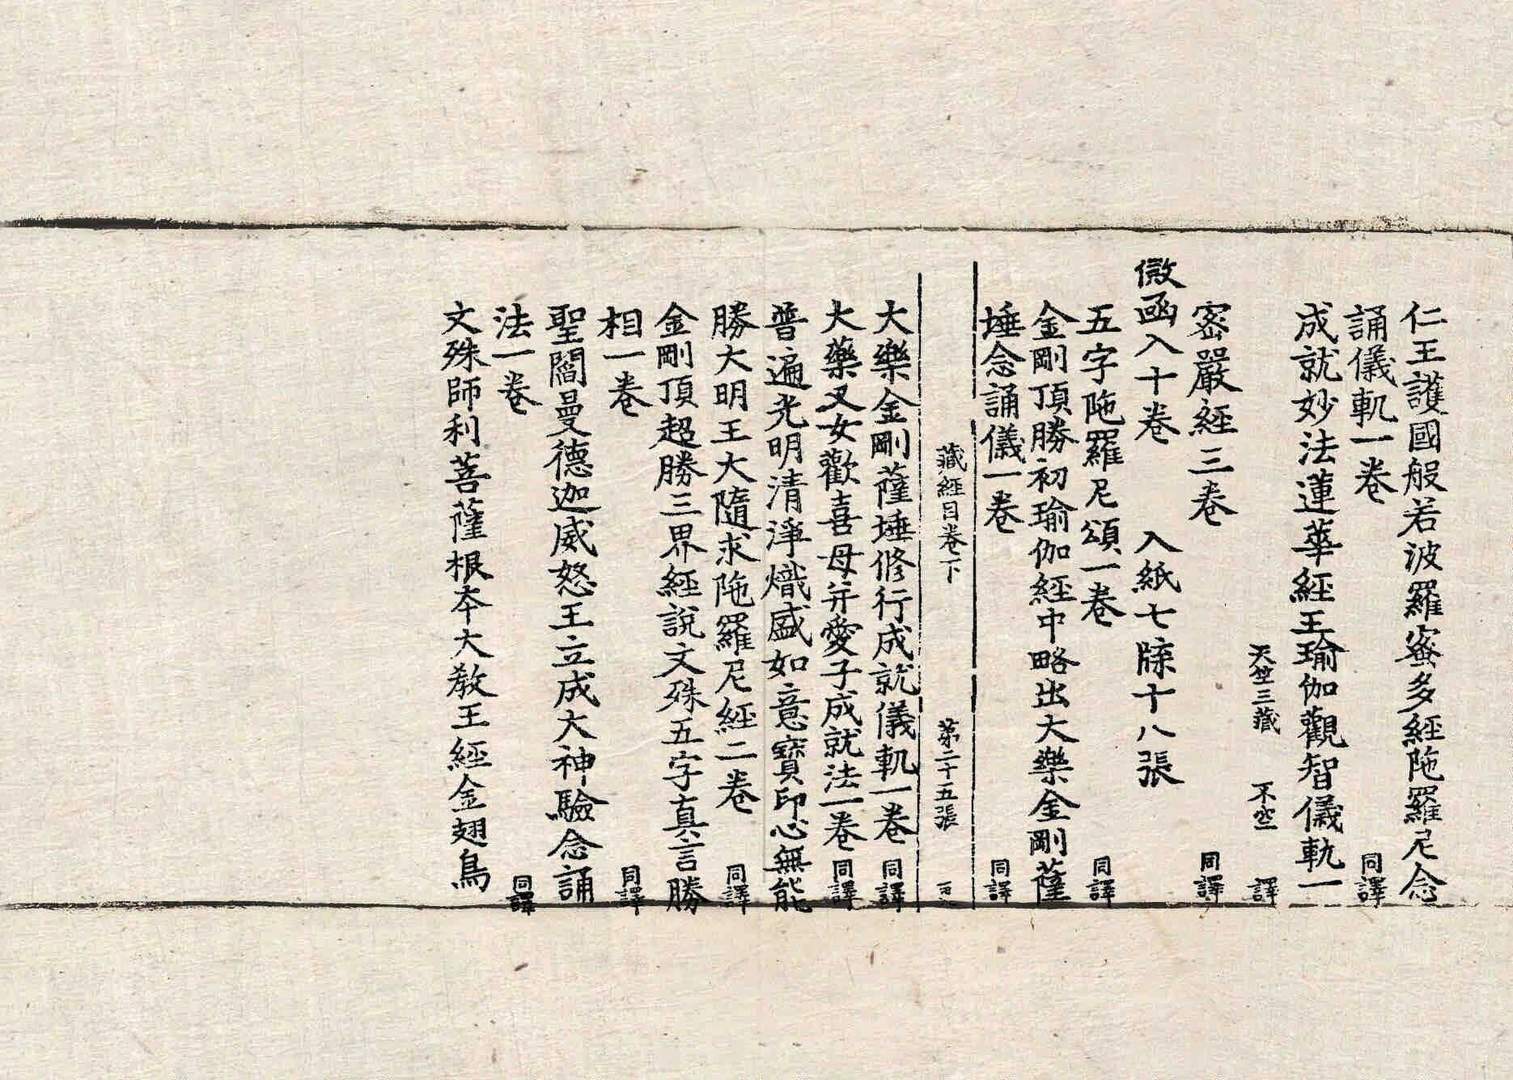 仁王護國般若波羅蜜多經陁羅尼念
誦儀軌一卷 同譯
成就妙法蓮華經王瑜伽觀智儀軌一
天竺三藏 不空 譯
密嚴經三卷 同譯
微函入十卷 入紙七牒十八張
五字陁羅尼頌一卷 同譯
金剛頂勝初瑜伽經中略出大樂金剛薩
埵念誦儀一卷 同譯
藏經目卷下 第二十五張
大樂金剛薩埵修行成就儀軌一卷 同譯
大藥叉女歡喜母并愛子成就法一卷 同譯
普遍光明清淨熾盛如意寶印心無能
勝大明王大隨求陁羅尼經二卷 同譯
金剛頂超勝三界經說文殊五字真言勝
相一卷 同譯
聖閻曼德迦威怒王立成大神驗念誦
法一卷 同譯
文殊師利菩薩根夲大教王經金翅鳥